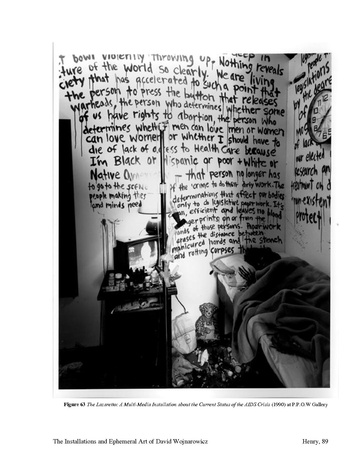 bowl violently throwing up.
ture of the world so clearly. Nothing reveals
ciety that has accelerated to such a point that We are living
the person to press the button that releases
warheads, the person who determines whether some
of us have rights to abortion, the person who
determines whether men can love men or women
can love women or whether I should have to
die of lack of access to Health Care because
I'm Black or Hispanic or poor + white or
Native that person no longer has
to go to the of the crime to do their dirty work. The
people making these determinations that affect our bodies
and minds need only to do legislative paperwork. It's
efficient and leaves no blood
fingerprints on or from the
hands of those persons. Paperwork
erases the distance between
manicured hands and the stench
and rotting corpses
people
legislations
by
of
of lack
our elected
research an
treatment on d
non-existent
protect
Figure 63 The Lazaretto: A Multi-Media Installation about the Current Status of the AIDS Crisis (1990) at P.P.O.W Gallery
The Installations and Ephemeral Art of David Wojnarowicz
Henry, 89